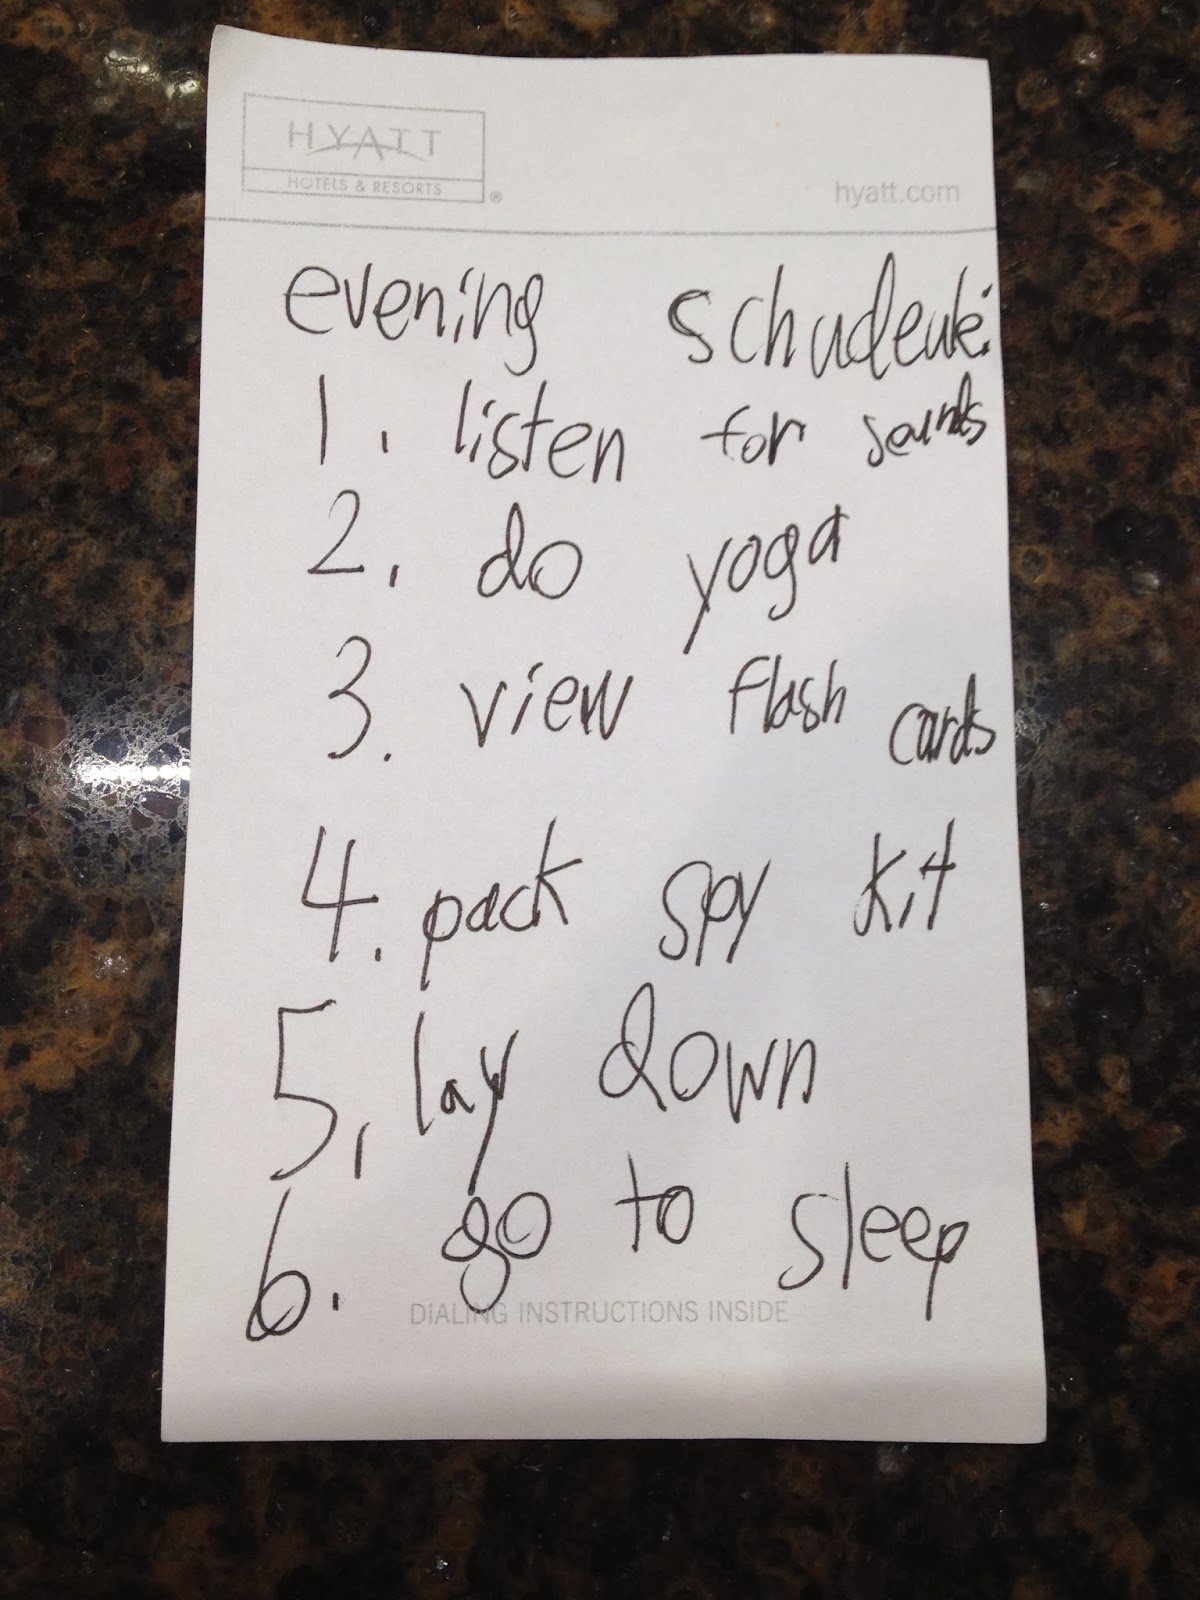 HYATT
HOTELS & RESORTS ®
hyatt.com
evening schudeule:
1. listen for sounds
2. do yoga
3. view flash cards
4. pack spy kit
5. lay down
6. go to sleep
DIALING INSTRUCTIONS INSIDE